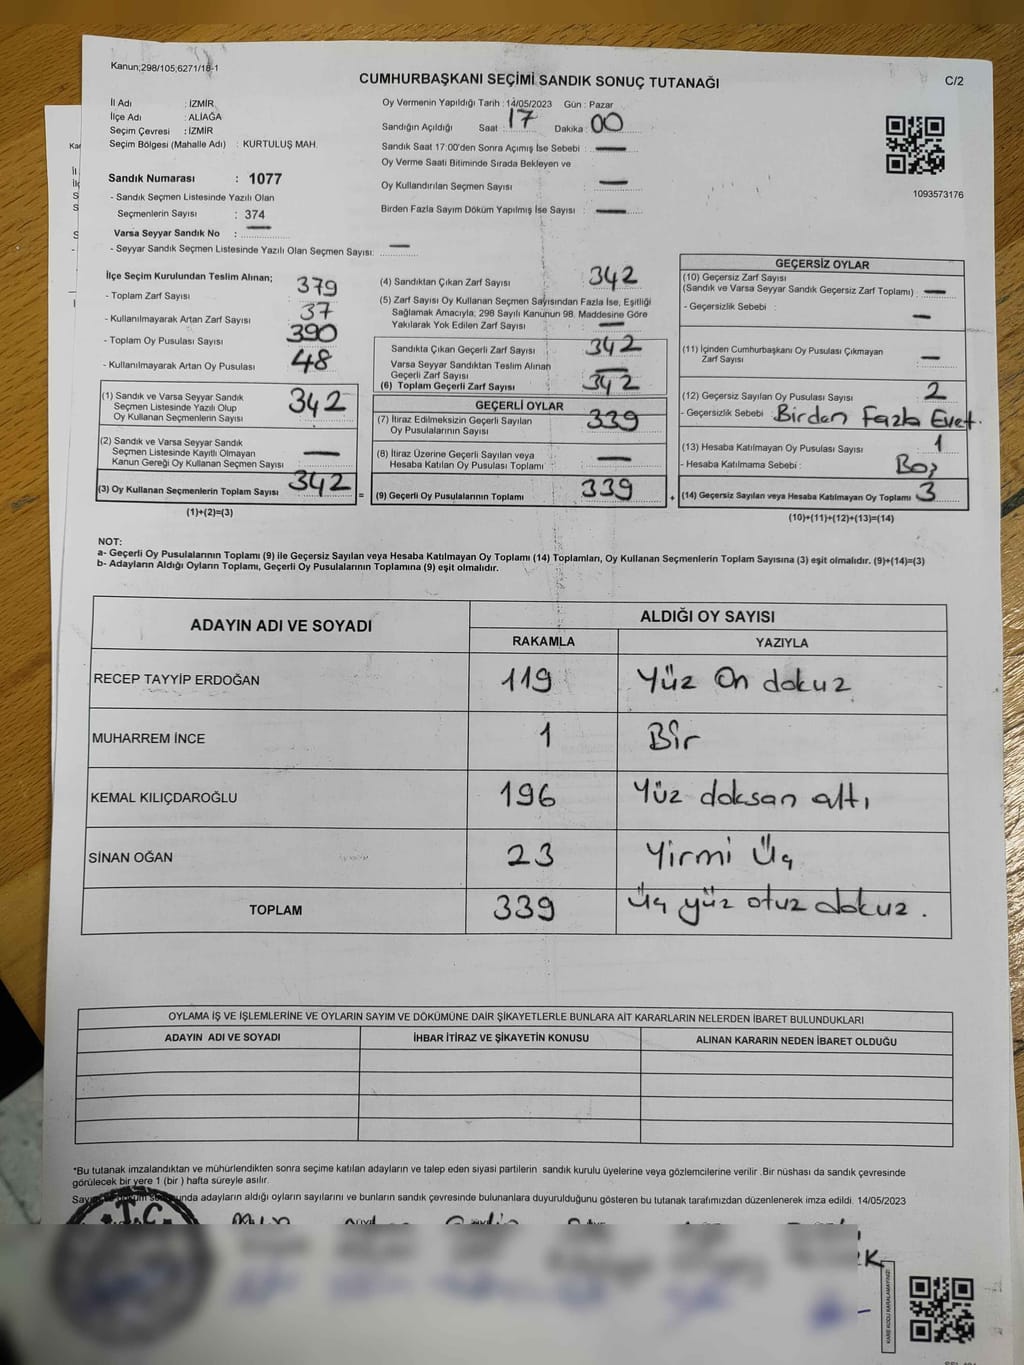 Kanun;298/105;6271/18-1
CUMHURBAŞKANI SEÇİMİ SANDIK SONUÇ TUTANAĞI
C/2
İl Adı : İZMİR
İlçe Adı : ALİAĞA
Seçim Çevresi : İZMİR
Seçim Bölgesi (Mahalle Adı) : KURTULUŞ MAH.
Sandık Numarası : 1077
- Sandık Seçmen Listesinde Yazılı Olan
Seçmenlerin Sayısı : 374
Varsa Seyyar Sandık No : —
- Seyyar Sandık Seçmen Listesinde Yazılı Olan Seçmen Sayısı: —
Oy Vermenin Yapıldığı Tarih : 14/05/2023 Gün : Pazar
Sandığın Açıldığı Saat : 17 Dakika : 00
Sandık Saat 17:00'den Sonra Açımış İse Sebebi : —
Oy Verme Saati Bitiminde Sırada Bekleyen ve
Oy Kullandırılan Seçmen Sayısı : —
Birden Fazla Sayım Döküm Yapılmış İse Sayısı : —
1093573176
İlçe Seçim Kurulundan Teslim Alınan;
- Toplam Zarf Sayısı 379
- Kullanılmayarak Artan Zarf Sayısı 37
- Toplam Oy Pusulası Sayısı 390
- Kullanılmayarak Artan Oy Pusulası 48
(1) Sandık ve Varsa Seyyar Sandık
Seçmen Listesinde Yazılı Olup
Oy Kullanan Seçmenlerin Sayısı 342
(2) Sandık ve Varsa Seyyar Sandık
Seçmen Listesinde Kayıtlı Olmayan
Kanun Gereği Oy Kullanan Seçmen Sayısı —
(3) Oy Kullanan Seçmenlerin Toplam Sayısı 342
(1)+(2)=(3)
(4) Sandıktan Çıkan Zarf Sayısı 342
(5) Zarf Sayısı Oy Kullanan Seçmen Sayısından Fazla İse, Eşitliği
Sağlamak Amacıyla, 298 Sayılı Kanunun 98. Maddesine Göre
Yakılarak Yok Edilen Zarf Sayısı —
Sandıkta Çıkan Geçerli Zarf Sayısı 342
Varsa Seyyar Sandıktan Teslim Alınan
Geçerli Zarf Sayısı —
(6) Toplam Geçerli Zarf Sayısı 342
GEÇERLİ OYLAR
(7) İtiraz Edilmeksizin Geçerli Sayılan
Oy Pusulalarının Sayısı 339
(8) İtiraz Üzerine Geçerli Sayılan veya
Hesaba Katılan Oy Pusulası Toplamı —
= (9) Geçerli Oy Pusulalarının Toplamı 339
GEÇERSİZ OYLAR
(10) Geçersiz Zarf Sayısı
(Sandık ve Varsa Seyyar Sandık Geçersiz Zarf Toplamı) —
- Geçersizlik Sebebi : —
(11) İçinden Cumhurbaşkanı Oy Pusulası Çıkmayan
Zarf Sayısı —
(12) Geçersiz Sayılan Oy Pusulası Sayısı 2
- Geçersizlik Sebebi Birden Fazla Evet.
(13) Hesaba Katılmayan Oy Pusulası Sayısı 1
- Hesaba Katılmama Sebebi : Boş
+ (14) Geçersiz Sayılan veya Hesaba Katılmayan Oy Toplamı 3
(10)+(11)+(12)+(13)=(14)
NOT:
a- Geçerli Oy Pusulalarının Toplamı (9) ile Geçersiz Sayılan veya Hesaba Katılmayan Oy Toplamı (14) Toplamları, Oy Kullanan Seçmenlerin Toplam Sayısına (3) eşit olmalıdır. (9)+(14)=(3)
b- Adayların Aldığı Oyların Toplamı, Geçerli Oy Pusulalarının Toplamına (9) eşit olmalıdır.
ADAYIN ADI VE SOYADI
ALDIĞI OY SAYISI
RAKAMLA YAZIYLA
RECEP TAYYİP ERDOĞAN 119 Yüz On dokuz
MUHARREM İNCE 1 Bir
KEMAL KILIÇDAROĞLU 196 Yüz doksan altı
SİNAN OĞAN 23 Yirmi Üç
TOPLAM 339 Üç yüz otuz dokuz.
OYLAMA İŞ VE İŞLEMLERİNE VE OYLARIN SAYIM VE DÖKÜMÜNE DAİR ŞİKAYETLERLE BUNLARA AİT KARARLARIN NELERDEN İBARET BULUNDUKLARI
ADAYIN ADI VE SOYADI İHBAR İTİRAZ VE ŞİKAYETİN KONUSU ALINAN KARARIN NEDEN İBARET OLDUĞU
*Bu tutanak imzalandıktan ve mühürlendikten sonra seçime katılan adayların ve talep eden siyasi partilerin sandık kurulu üyelerine veya gözlemcilerine verilir .Bir nüshası da sandık çevresinde
görülecek bir yere 1 (bir ) hafta süreyle asılır.
adayların aldığı oyların sayılarını ve bunların sandık çevresinde bulunanlara duyurulduğunu gösteren bu tutanak tarafımızdan düzenlenerek imza edildi. 14/05/2023
T.C.
KARE KODU KARALAMAYINIZ!